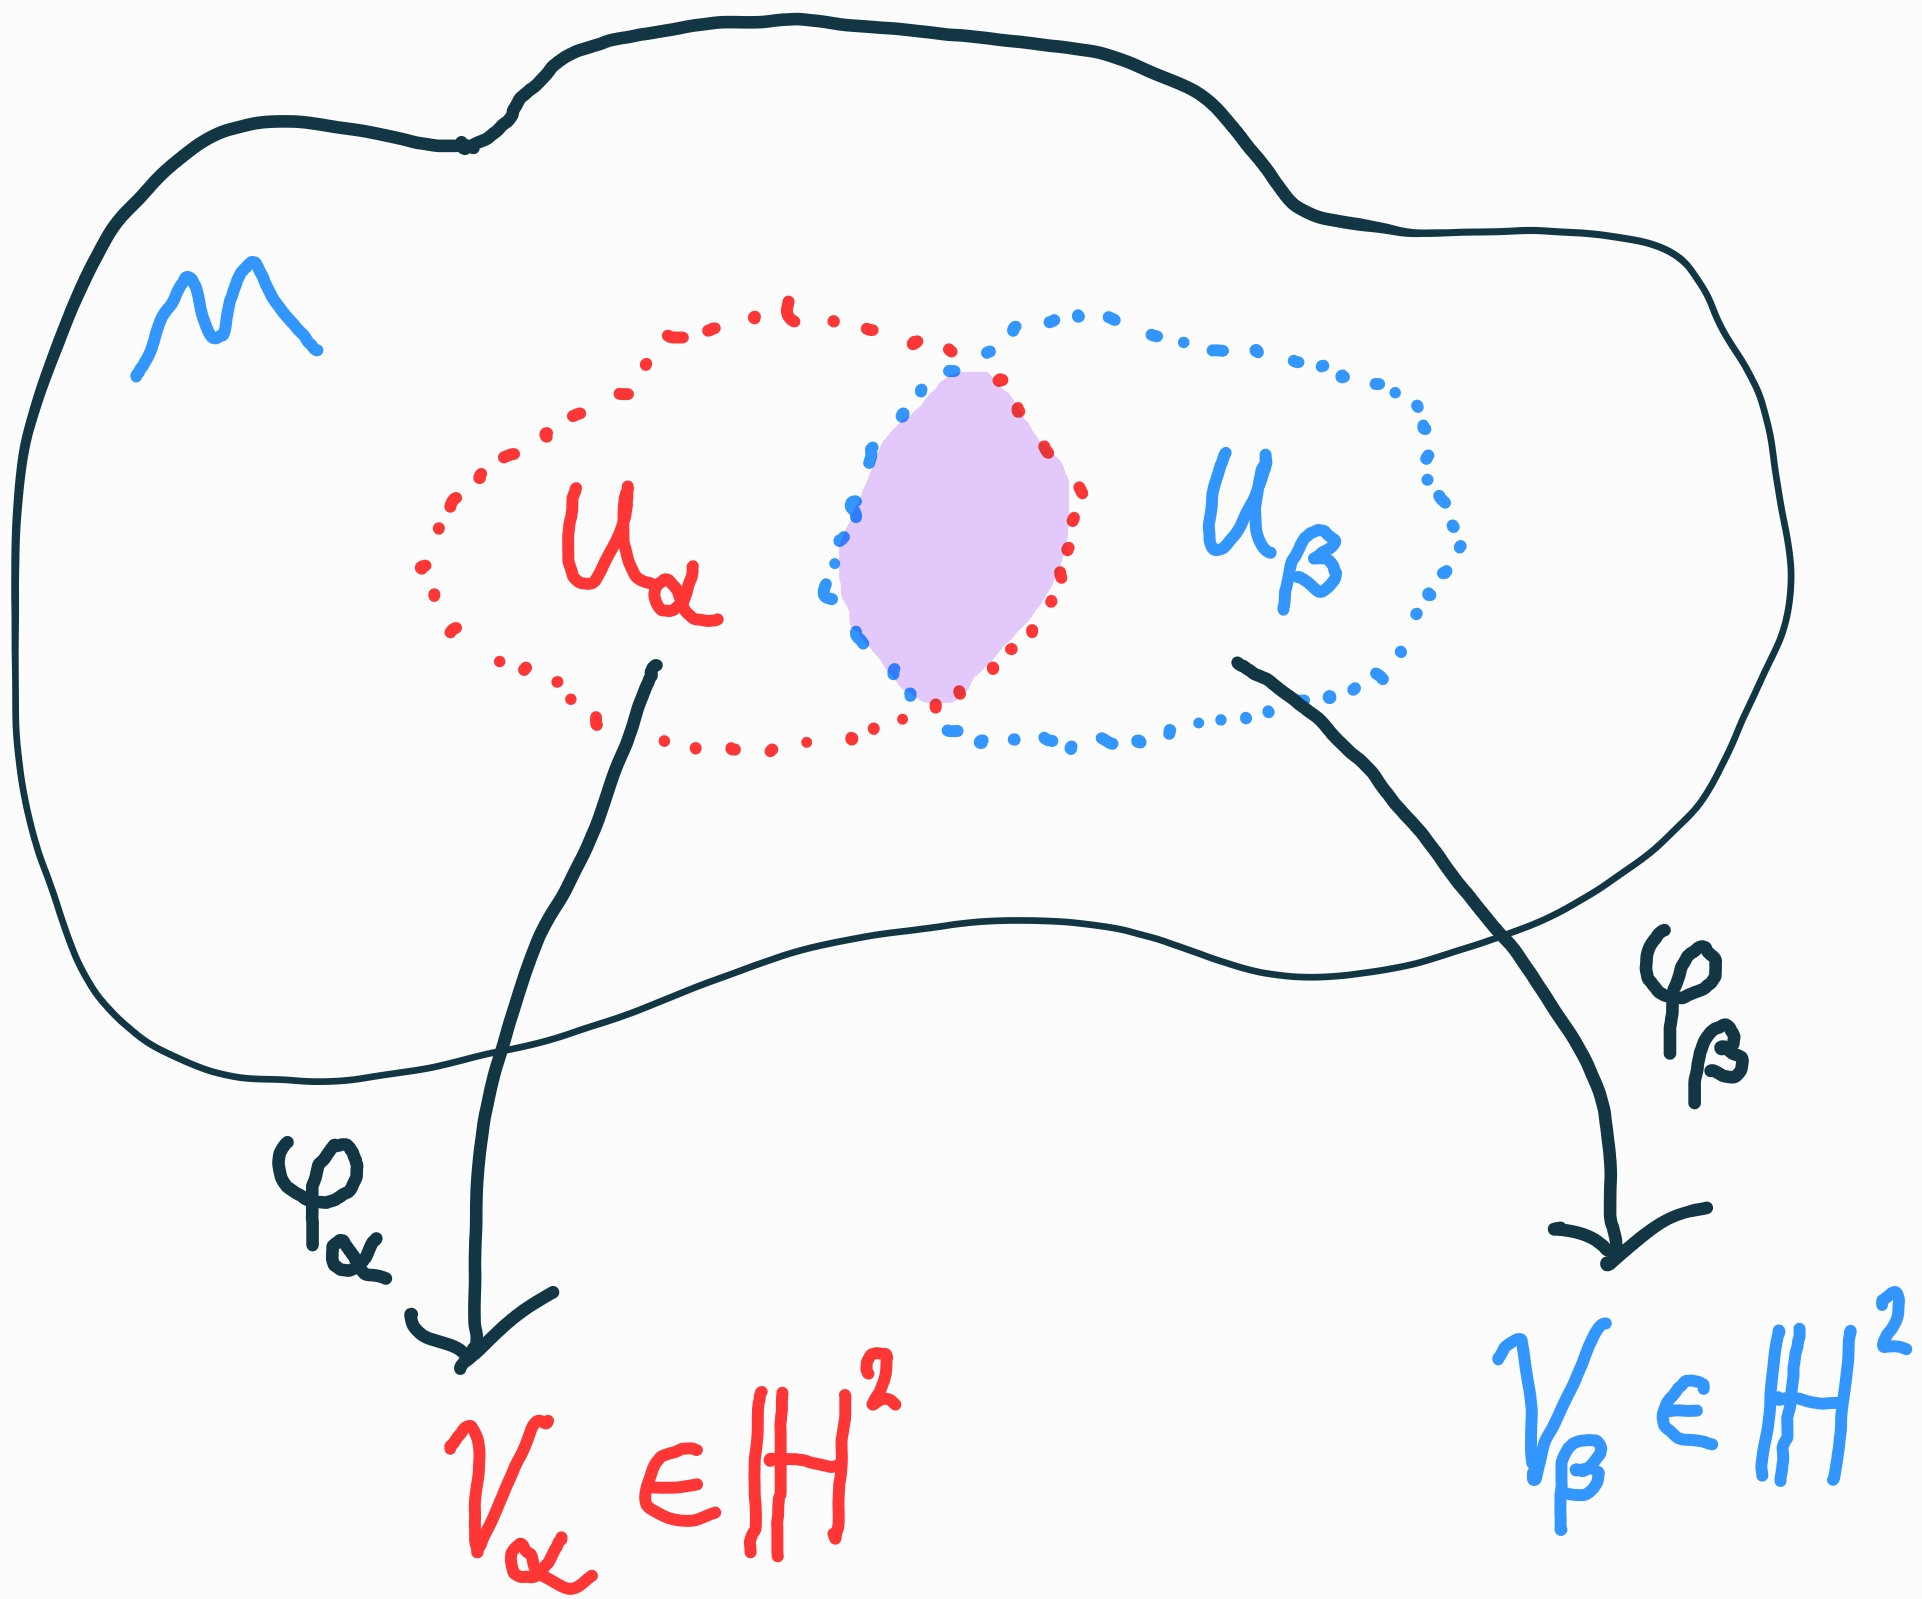 M
U_α
U_β
φ_β
φ_α
V_α ∈ ℍ²
V_β ∈ ℍ²